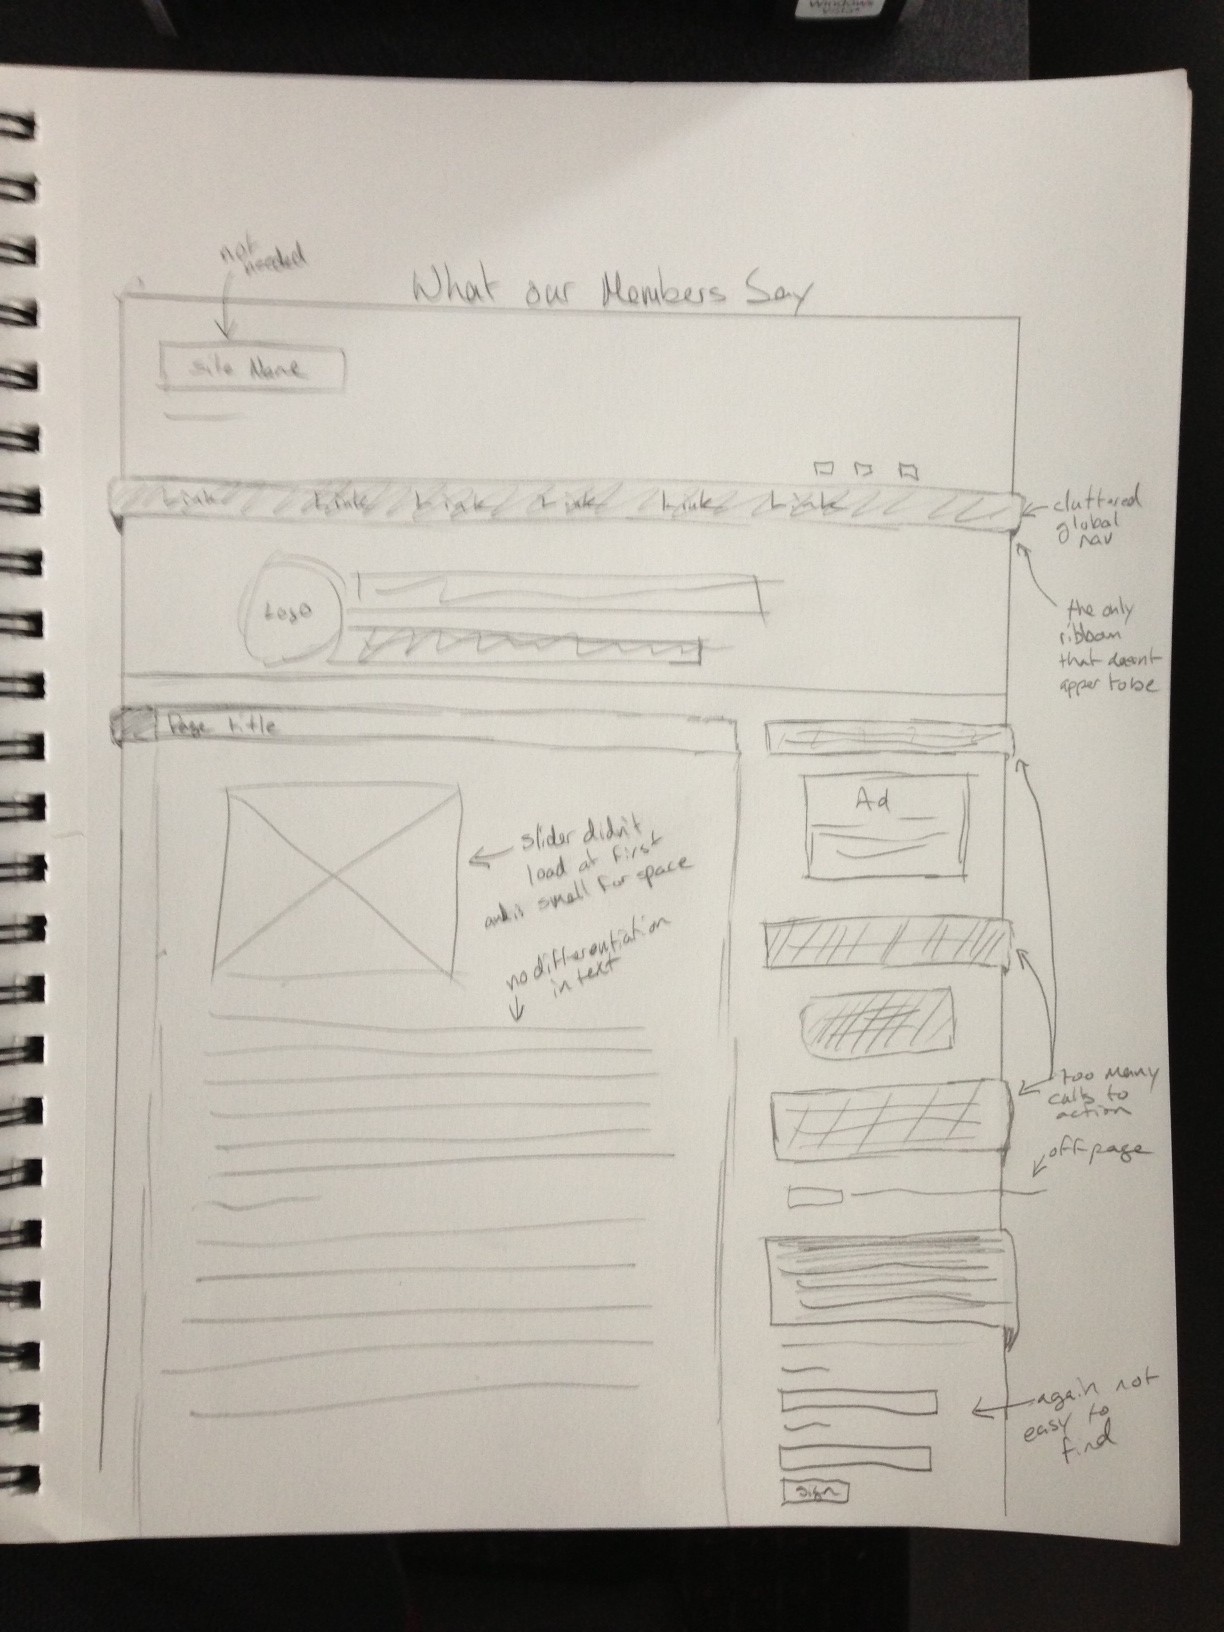 Windows
Vista
not
needed
What our Members Say
Site Name
Link Link Link Link Link Link
cluttered
global
nav
Logo
the only
ribboan
that doesnt
apper to be
Page title
Ad
slider didn't
load at first
and is small for space
no differentiation
in text
too many
calls to
action
off page
again not
easy to
find
sign